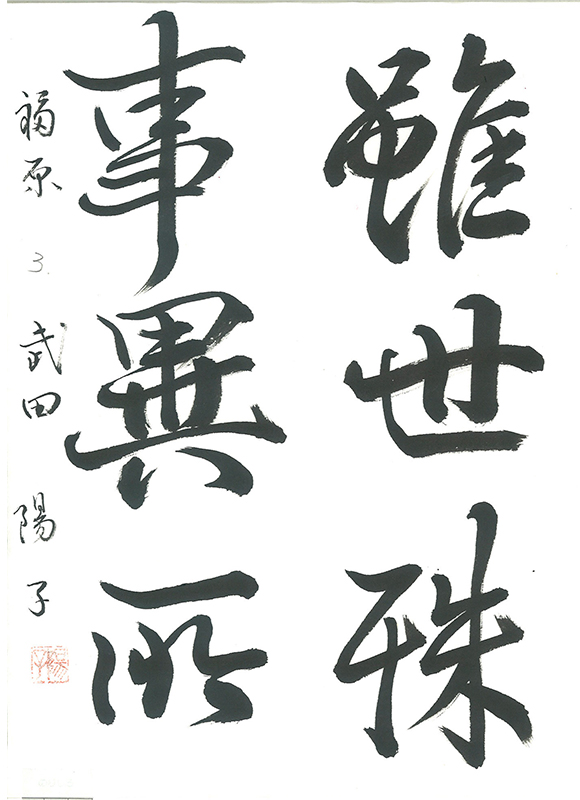 雖世殊
事異所
福原 3 武田 陽子